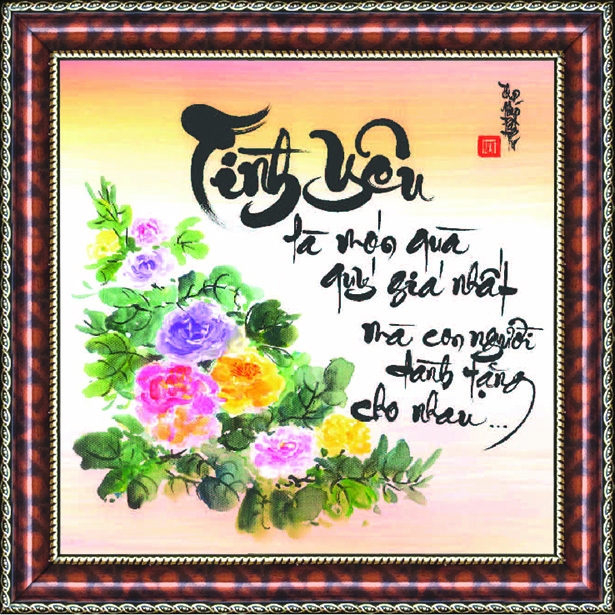 Tình Yêu
là món quà
quý giá nhất
mà con người
dành tặng
cho nhau...